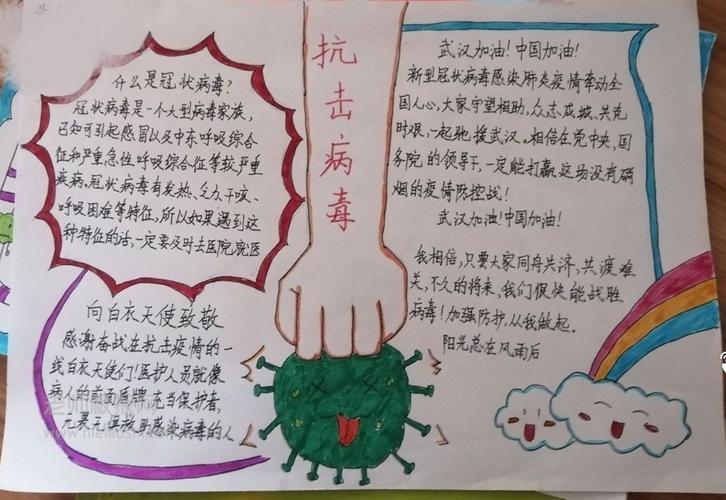 抗击病毒
什么是冠状病毒?
冠状病毒是一个大型病毒家族,
已知可引起感冒以及中东呼吸综合
征和严重急性呼吸综合征等较严重
疾病。冠状病毒有发热、乏力、干咳、
呼吸困难等特征,所以如果遇到这
种特征的话,一定要及时去医院就医
向白衣天使致敬
感谢奋战在抗击疫情的一
线白衣天使们!医护人员就像
病人的前面盾牌,充当保护者,
感染病毒的人
武汉加油!中国加油!
新型冠状病毒感染肺炎疫情牵动全
国人心,大家守望相助,众志成城、共克
时艰,一起驰援武汉。相信在党中央、国
务院的领导下,一定能打赢这场没有硝
烟的疫情防控战!
武汉加油!中国加油!
我相信,只要大家同舟共济,共渡难
关,不久的将来,我们很快能战胜
病毒!加强防护,从我做起。
阳光总在风雨后